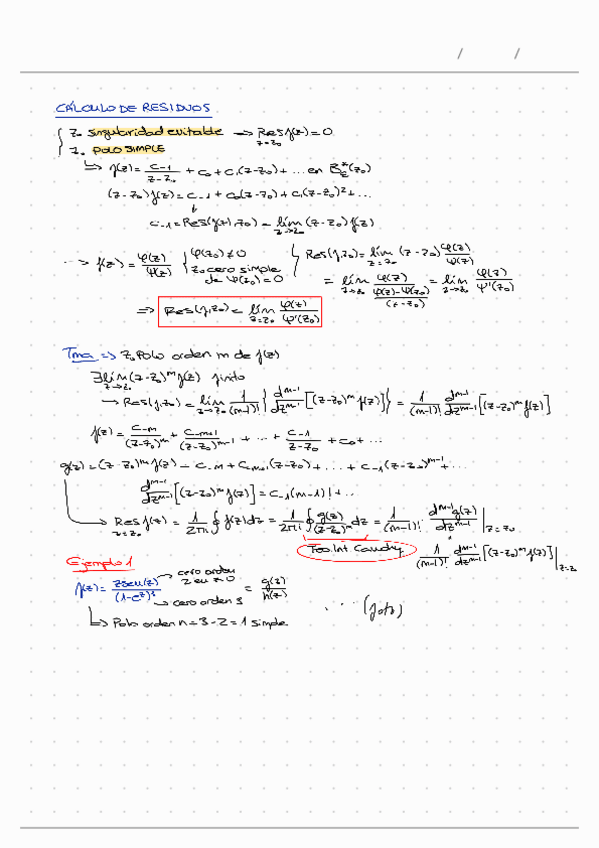 / /
CÁLCULO DE RESIDUOS
{ z₀ singularidad evitable → Res f(z) = 0
z=z₀
z₀ POLO SIMPLE
↳ f(z) = c₋₁/(z-z₀) + c₀ + c₁(z-z₀) + ... en B*ε(z₀)
(z-z₀)f(z) = c₋₁ + c₀(z-z₀) + c₁(z-z₀)² + ...
↓
c₋₁ = Res(f(z), z₀) = lím z→z₀ (z-z₀) f(z)
··→ f(z) = φ(z)/ψ(z) { φ(z₀) ≠ 0 { Res(f, z₀) = lím z=z₀ (z-z₀) φ(z)/ψ(z)
z₀ cero simple
de ψ(z₀) = 0 = lím z→z₀ φ(z)/((ψ(z)-ψ(z₀))/(z-z₀)) = lím z→z₀ φ(z)/ψ'(z₀)
⇒ Res(f, z₀) = lím z=z₀ φ(z)/ψ'(z₀)
Tma ⇒ z₀ Polo orden m de f(z)
∃ lím z→z₀ (z-z₀)ᵐ f(z) finito
→ Res(f, z₀) = lím z→z₀ 1/(m-1)! { dᵐ⁻¹/dzᵐ⁻¹ [(z-z₀)ᵐ f(z)] } = 1/(m-1)! dᵐ⁻¹/dzᵐ⁻¹ [(z-z₀)ᵐ f(z)]
f(z) = c₋m/(z-z₀)ᵐ + c₋m+1/(z-z₀)ᵐ⁻¹ + ... + c₋₁/(z-z₀) + c₀ + ...
g(z) = (z-z₀)ᵐ f(z) = c₋m + c₋m+1(z-z₀) + ... + c₋₁(z-z₀)ᵐ⁻¹ + ...
dᵐ⁻¹/dzᵐ⁻¹ [(z-z₀)ᵐ f(z)] = c₋₁(m-1)! + ...
→ Res f(z) = 1/2πi ∮ f(z)dz = 1/2πi ∮ g(z)/(z-z₀)ᵐ dz = 1/(m-1)! dᵐ⁻¹g(z)/dzᵐ⁻¹ |z=z₀
z=z₀
Teo. Int Cauchy
1/(m-1)! dᵐ⁻¹/dzᵐ⁻¹ [(z-z₀)ᵐ f(z)] |z=z₀
Ejemplo 1
f(z) = z sen(z)/(1-eᶻ)³ → cero orden 2 en z=0 = g(z)/h(z)
→ cero orden 3
... (foto)
↳ Polo orden n = 3-2 = 1 simple